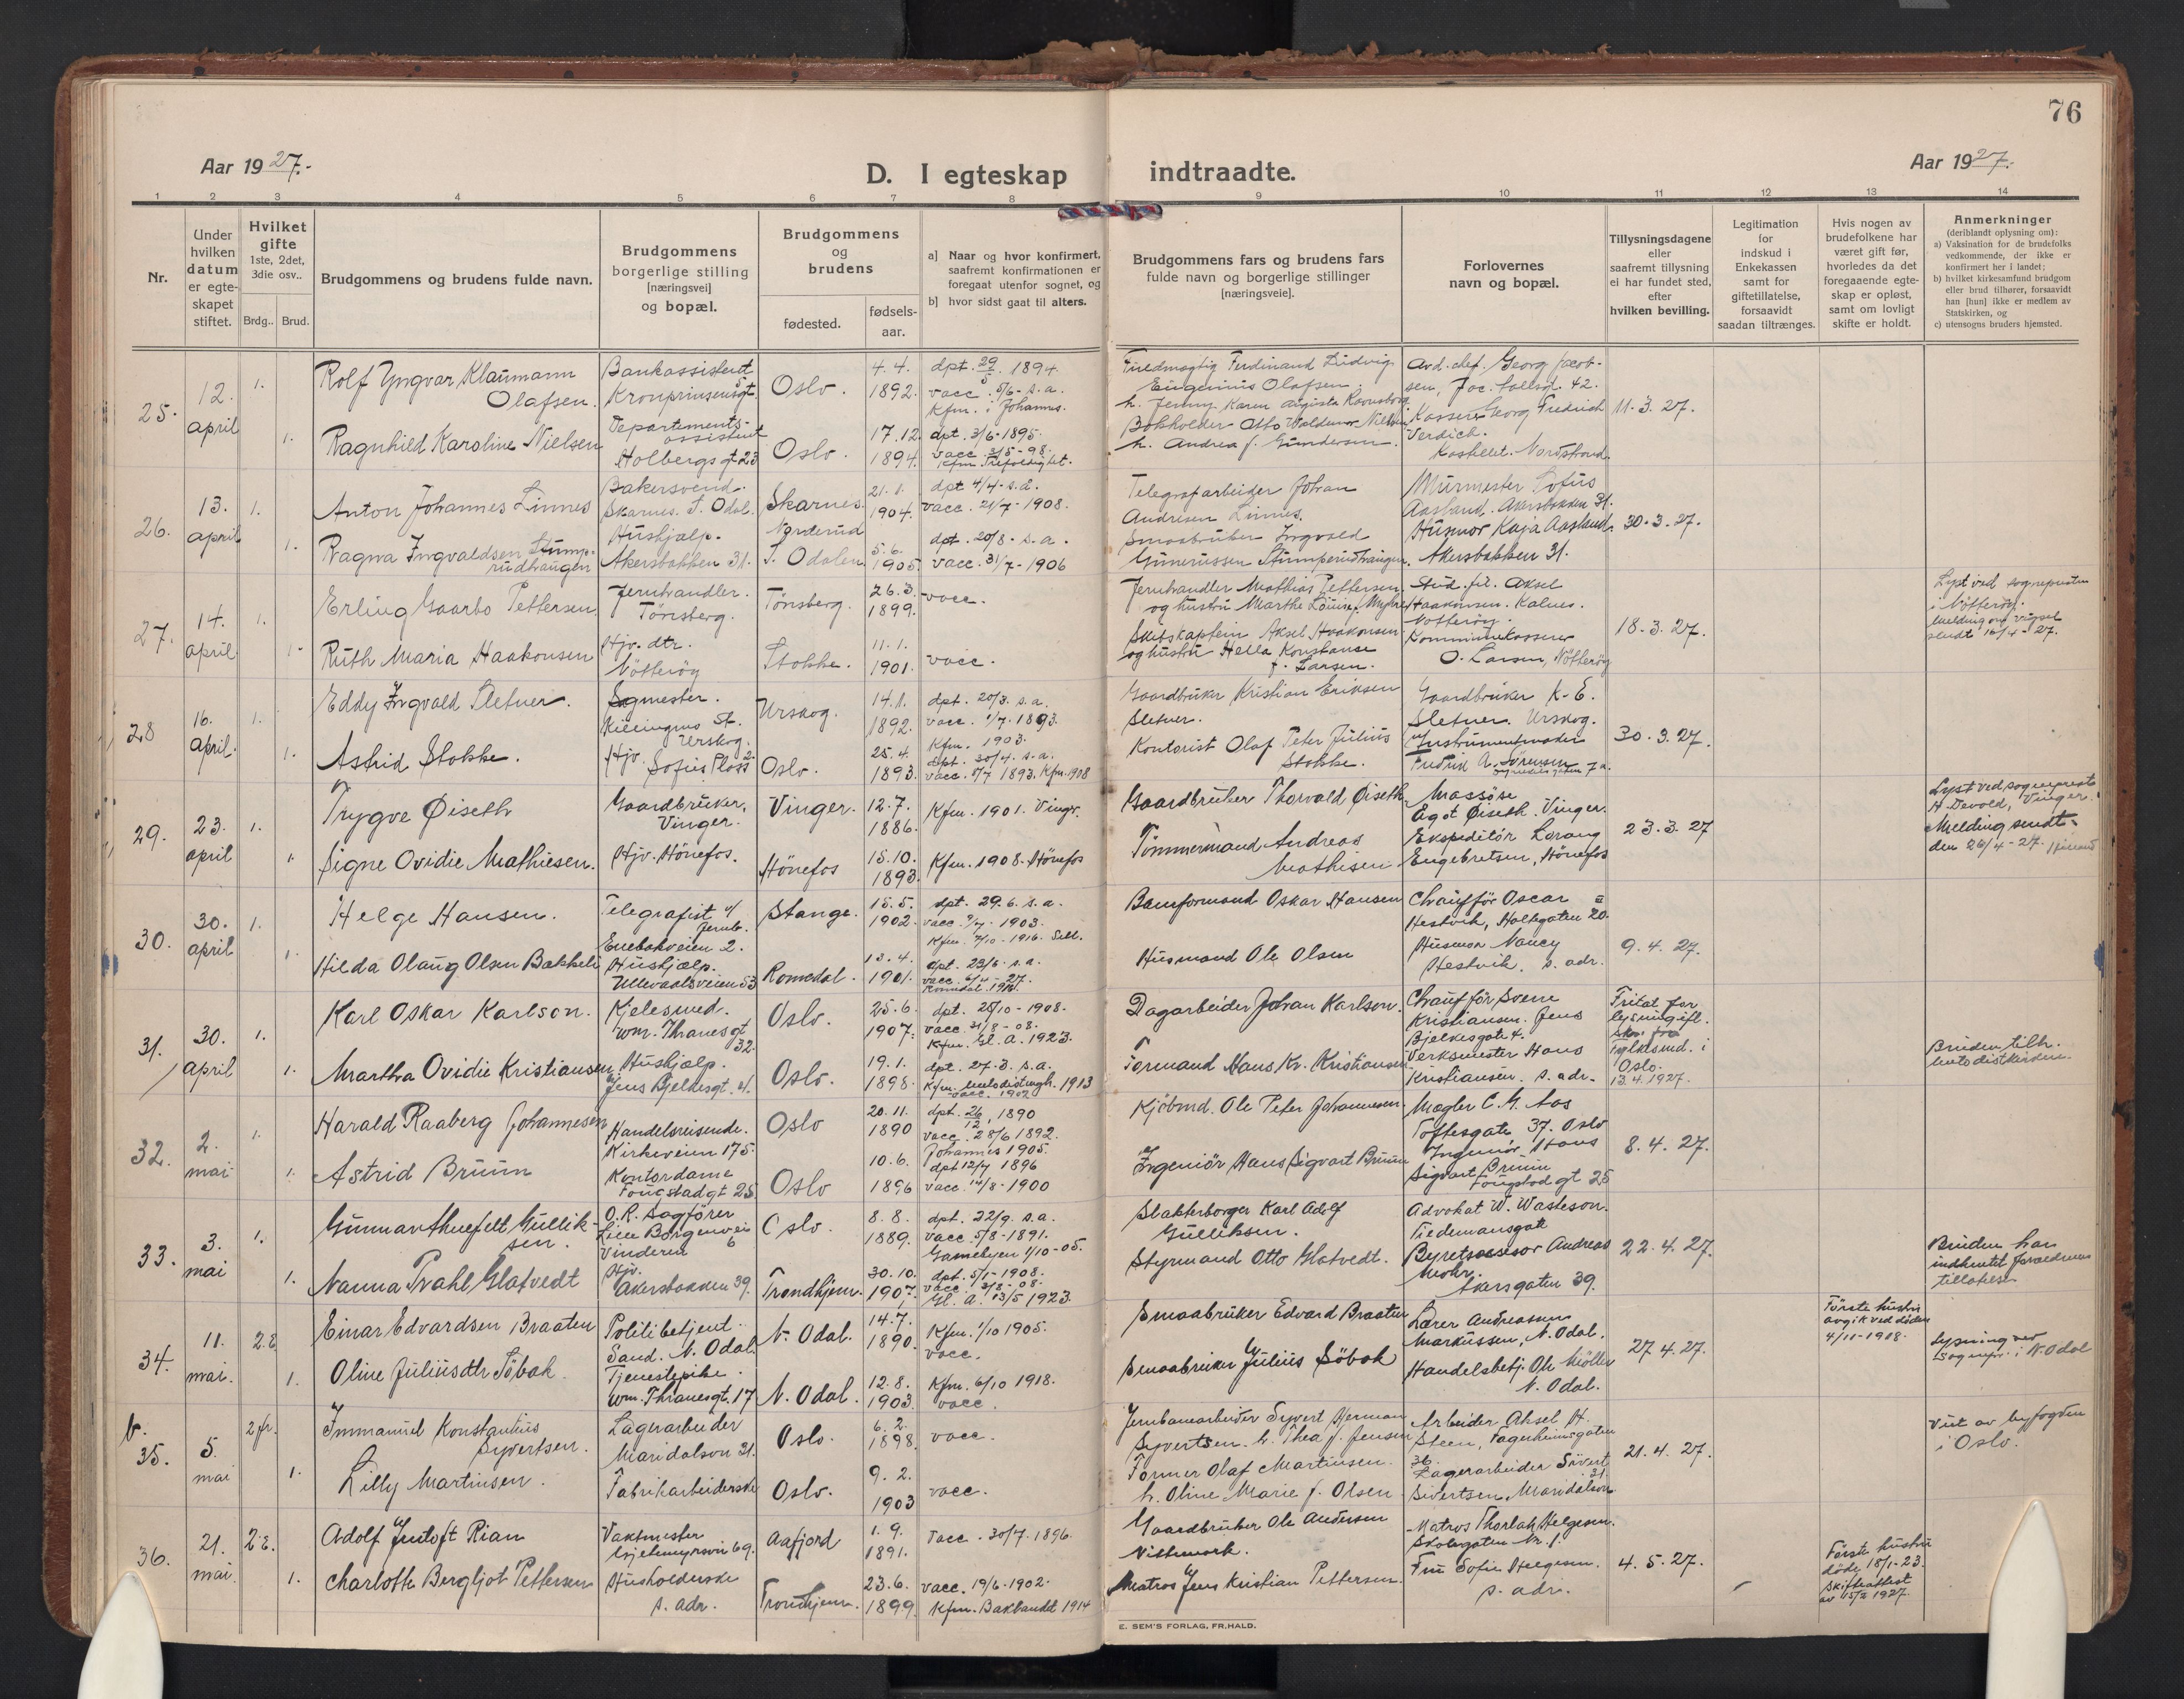 76
Aar 1927.
D. I egteskap indtraadte.
Aar 1927.
1 2 3 4 5 6 7 8 9 10 11 12 13 14
Nr.
Under hvilken datum er egte-skapet stiftet.
Hvilket gifte 1ste, 2det, 3die osv..
Brdg.. Brud.
Brudgommens og brudens fulde navn.
Brudgommens borgerlige stilling [næringsvei] og bopæl.
Brudgommens og brudens
fødested.
fødsels-aar.
a] Naar og hvor konfirmert, saafremt konfirmationen er foregaat utenfor sognet, og
b] hvor sidst gaat til alters.
Brudgommens fars og brudens fars fulde navn og borgerlige stillinger [næringsveie].
Forlovernes navn og bopæl.
Tillysningsdagene eller saafremt tillysning ei har fundet sted, efter hvilken bevilling.
Legitimation for indskud i Enkekassen samt for giftetillatelse, forsaavidt saadan tiltrænges.
Hvis nogen av brudefolkene har været gift før, hvorledes da det foregaaende egte-skap er opløst, samt om lovligt skifte er holdt.
Anmerkninger (deriblandt oplysning om):
a) Vaksination for de brudefolks vedkommende, der ikke er konfirmert her i landet;
b) hvilket kirkesamfund brudgom eller brud tilhører, forsaavidt han [hun] ikke er medlem av Statskirken, og
c) utensogns bruders hjemsted.
25. 12. april 1. 1.
Rolf Yngvar Klaumann Olafsen.
Bankassistent
Oslo. 4. 4. 1892.
dpt. 29/5 1894
vacc. 5/6 - s.a.
Kfm. i Johannes.
Ferdinand Ludvig
Eugenius Olafsen.
Georg Jacob-sen,
11. 3. 27.
Ragnhild Karoline Nielsen
Departements-assistent
Holbergs gt 23
Oslo. 17. 12. 1894.
dpt. 3/6 - 1895.
vacc. 3/5 - 98.
Kfm. Trefoldighet.
Bokholder Otto Waldemar Nielsen
h. Andrea f. Gundersen.
Kasserer Georg Fredrich
Kastellet. Nordstrand.
26. 13. april 1. 1.
Anton Johannes Linnes
Bakersvend.
Skarnes. S. Odal.
Skarnes 21. 1. 1904.
dpt 4/4 - s.a.
vacc. 21/7 - 1908.
Telegrafarbeider Johan
Andresen Linnes.
Murmester Sofus
Aasland. Akersbakken 31.
30. 3. 27.
Ragna Ingvaldsen Stump-rudhaugen
Hushjælp.
Akersbakken 31.
Norderud
S. Odalen 5. 6. 1905.
dpt. 20/8 - s.a.
vacc. 31/7 - 1906
Smaabruker Ingvald
Gunerussen Stumperudhaugen.
Husmor Kaja Aasland.
Akersbakken 31.
27. 14. april 1. 1.
Erling Gaarbo Pettersen
Jernhandler.
Tönsberg.
Tönsberg. 26. 3. 1899.
vacc.
Jernhandler Mathias Pettersen
og hustru Marthe Louise f. Myhre
Stud. fil. Aksel
Haakonsen. Kalnes.
Nötteröy.
18. 3. 27.
Lyst ved sogneprsten
i Nötteröy.
Melding om vigsel
sendt 16/4 - 27.
Ruth Maria Haakonsen
Hjv. dtr.
Nötteröy
Stokke. 11. 1. 1901.
vacc.
Skibskaptein Aksel Haakonsen
og hustru Hella Konstanse
f. Larsen.
Kommunekasserer
O. Larsen, Nötteröy
28 16. april. 1. 1.
Eddy Ingvald Sletner.
Sagmester.
Urskog.
Urskog. 14. 1. 1892.
dpt. 20/3. s.a.
vacc. 1/7. 1893.
Gaardbruker Kristian Eriksen
Sletner.
Gaardbruker K. E.
Sletner. Urskog.
30. 3. 27.
Astrid Stokke.
Hjv.
Oslo. 25. 4. 1893.
Kfm. 1903.
dpt. 30/4. s.a.
vacc. 5/7 1893. Kfm. 1908
Kontorist Olaf Peter Julius
Stokke.
Instrumentmaker
Fredrik A. Sörensen
29. 23. april 1. 1.
Trygve Øiseth
Gaardbruker,
Vinger.
Vinger. 12. 7. 1886.
Kfm. 1901. Vinger.
Gaardbruker Thorvald Øiseth
Massöse
Agot Øiseth. Vinger.
23. 3. 27
Lyst ved sogneprest
H. Devold, Vinger.
Melding sendt
den 26/4 - 27.
Signe Ovidie Mathiesen.
Hjv. Hönefos.
Hönefos 15. 10. 1893.
Kfm. 1908. Hönefos
Tömmermand Andreas
Mathisen
Ekspeditör Lorang
Engebretsen, Hönefos
30. 30. april 1. 1.
Helge Hansen.
Telegrafist v/ Jernb.
Enebakveien 2.
Stange. 15. 5. 1902.
dpt. 29. 6. s.a.
vacc. 1903.
Kfm. 1916.
Baneformand Oskar Hansen
Chauffør Oscar
Hestvik, Holtegaten 20.
9. 4. 27.
Hilda Olaug Olsen Bakkeli
Hushjælp.
Ullevaalsveien 53
Romedal. 13. 4. 1901.
dpt. 23/6. s.a.
Husmand Ole Olsen
Husmor Nancy
Hestvik. s. adr.
31. 30. april 1. 1.
Karl Oskar Karlson.
Kjelesmed.
Wm. Thranesgt 32.
Oslo. 25. 6. 1907.
dpt. 25/10 - 1908.
vacc. 31/8 - 08.
Kfm. Gl. A. 1923.
Dagarbeider Johan Karlson.
Chauffør Svene
Kristiansen. Jens
Bjelkesgate 4.
Fritat for
lysning ifl.
Fylkesmd. i
Oslo.
13. 4. 1927.
Bruden tilh.
Metodistkirken.
Martha Ovidie Kristiansen
Hushjælp.
Jens Bjelkesgt. 4.
Oslo. 19. 1. 1898.
dpt. 27. 3. s.a.
Kfm. Metodistmgh. 1913
vacc. 1902
Formand Hans Kr. Kristiansen
Verksmester Hans
Kristiansen. s. adr.
32. 2. mai 1. 1.
Harald Raaberg Johannesen
Handelsreisende.
Kirkeveien 175.
Oslo 20. 11. 1890
dpt. 26/12, 1890
vacc. 28/6 1892.
Johannes 1905.
Kjöbmd. Ole Peter Johannesen.
Mægler C. M. Aas
Toftesgate 37. Oslo
8. 4. 27.
Astrid Bruun
Kontordame
Fougstadgt 25
Oslo 10. 6. 1896
dpt 12/7 1896
vacc. 14/8 - 1900
Ingeniör Hans Sigvart Bruun
Ingeniör Hans
Sigvart Bruun
Fougstad gt 25
33. 3. mai 1. 1.
Gunnar Gullik-sen.
O. R. Sagförer
Lille Borgenvei 6
Vinderen
Oslo. 8. 8. 1889.
dpt. 22/9. s.a.
vacc. 5/8 - 1891.
Gamlebyen 1/10 - 05.
Slakterborger Karl Adolf
Gulliksen.
Advokat W. Wasteson.
Tiedemansgate
22. 4. 27.
Bruden har
indhentet foreldrenes
tillatelse
Nanna Prahl Glatvedt
Hjv.
Akersbakken 39.
Trondhjem. 30. 10. 1907.
dpt. 5/1 - 1908.
vacc. 3/8 - 08.
Gl. A. 13/5 1923.
Styrmand Otto Glatvedt.
Byretsassesor Andreas
Mohr.
Akersgaten 39.
34. 11. mai. 2 E 1.
Einar Edvardsen Braaten
Politibetjent.
Sand. N. Odal
N. Odal. 14. 7. 1890.
Kfm. 1/10 1905.
vacc.
Smaabruker Edvard Braaten
Lærer Andreassen
Markussen, N. Odal.
27. 4. 27.
Første hustru
avgik ved døden
4/11 - 1918.
Lysning ved
Sognepr. i N. Odal
Oline Juliusdtr Söbak
Tjenestepike.
Wm. Thranesgt. 17
N. Odal. 12. 8. 1903.
Kfm. 6/10 1918.
vacc.
Smaabruker Julius Söbak
Handelsbetj. Ole Möller
N. Odal.
b. 35. 5. mai 2 fr. 1.
Immanuel Konstantius
Syvertsen.
Lagerarbeider
Maridalsvn 31.
Oslo. 6. 2. 1898.
vacc.
Jernbanearbeider Syvert Herman
Syvertsen. h. Thea f. Jensen
Arbeider Aksel H.
Steen, Fagerheimsgaten
36.
21. 4. 27.
Viet av byfogden
i Oslo.
Lilly Martinsen.
Fabrikarbeiderske
Oslo. 9. 2. 1903
vacc.
Former Olaf Martinsen.
h. Oline Marie f. Olsen
Lagerarbeider Sivert
Sivertsen, Maridalsvn 31.
36. 21. mai. 2 E. 1.
Adolf Jentoft Rian
Vaktmester
69.
Aafjord 1. 9. 1891.
Vacc. 30/7. 1896.
Gaardbruker Ole Andersen
Matros Thorlak Helgesen.
Stolegaten Nr. 1.
4. 5. 27.
Første hustru
döde 18/1 - 23.
Skifteattest
av 15/2 1927.
Charlotte Bergljot Pettersen
Husholderske
s. adr.
Trondhjem. 23. 6. 1899.
vacc. 19/6 - 1902.
Kfm. Baklandet 1914
Matros Jens Kristian Pettersen.
Fru Sofie Helgesen.
s. adr.
E. SEM'S FORLAG, FR.HALD.